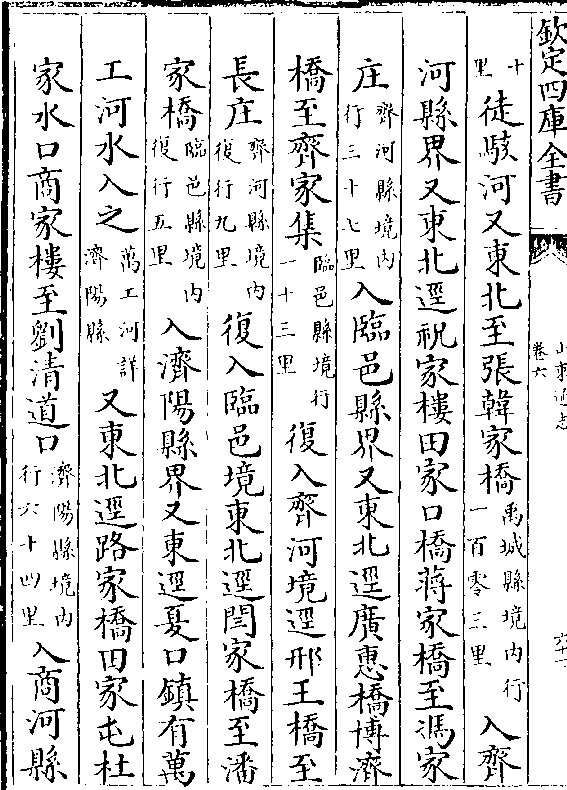 欽定四庫全書
山東通志
卷六
十里徒駭河又東北至張韓家橋禹城縣境内行一百零三里入齊
河縣界又東北逕祝家樓田家口橋蔣家橋至馮家
庄齊河縣境内行三十七里入臨邑縣界又東北逕廣惠橋博濟
橋至齊家集臨邑縣境行一十三里復入齊河境逕邢王橋至
長庄齊河縣境内復行九里復入臨邑境東北逕閆家橋至潘
家橋臨邑縣境内復行五里入濟陽縣界又東逕夏口鎮有萬
工河水入之萬工河詳濟陽縣又東北逕路家橋田家屯杜
家水口商家樓至劉清道口濟陽縣境内行六十四里入商河縣